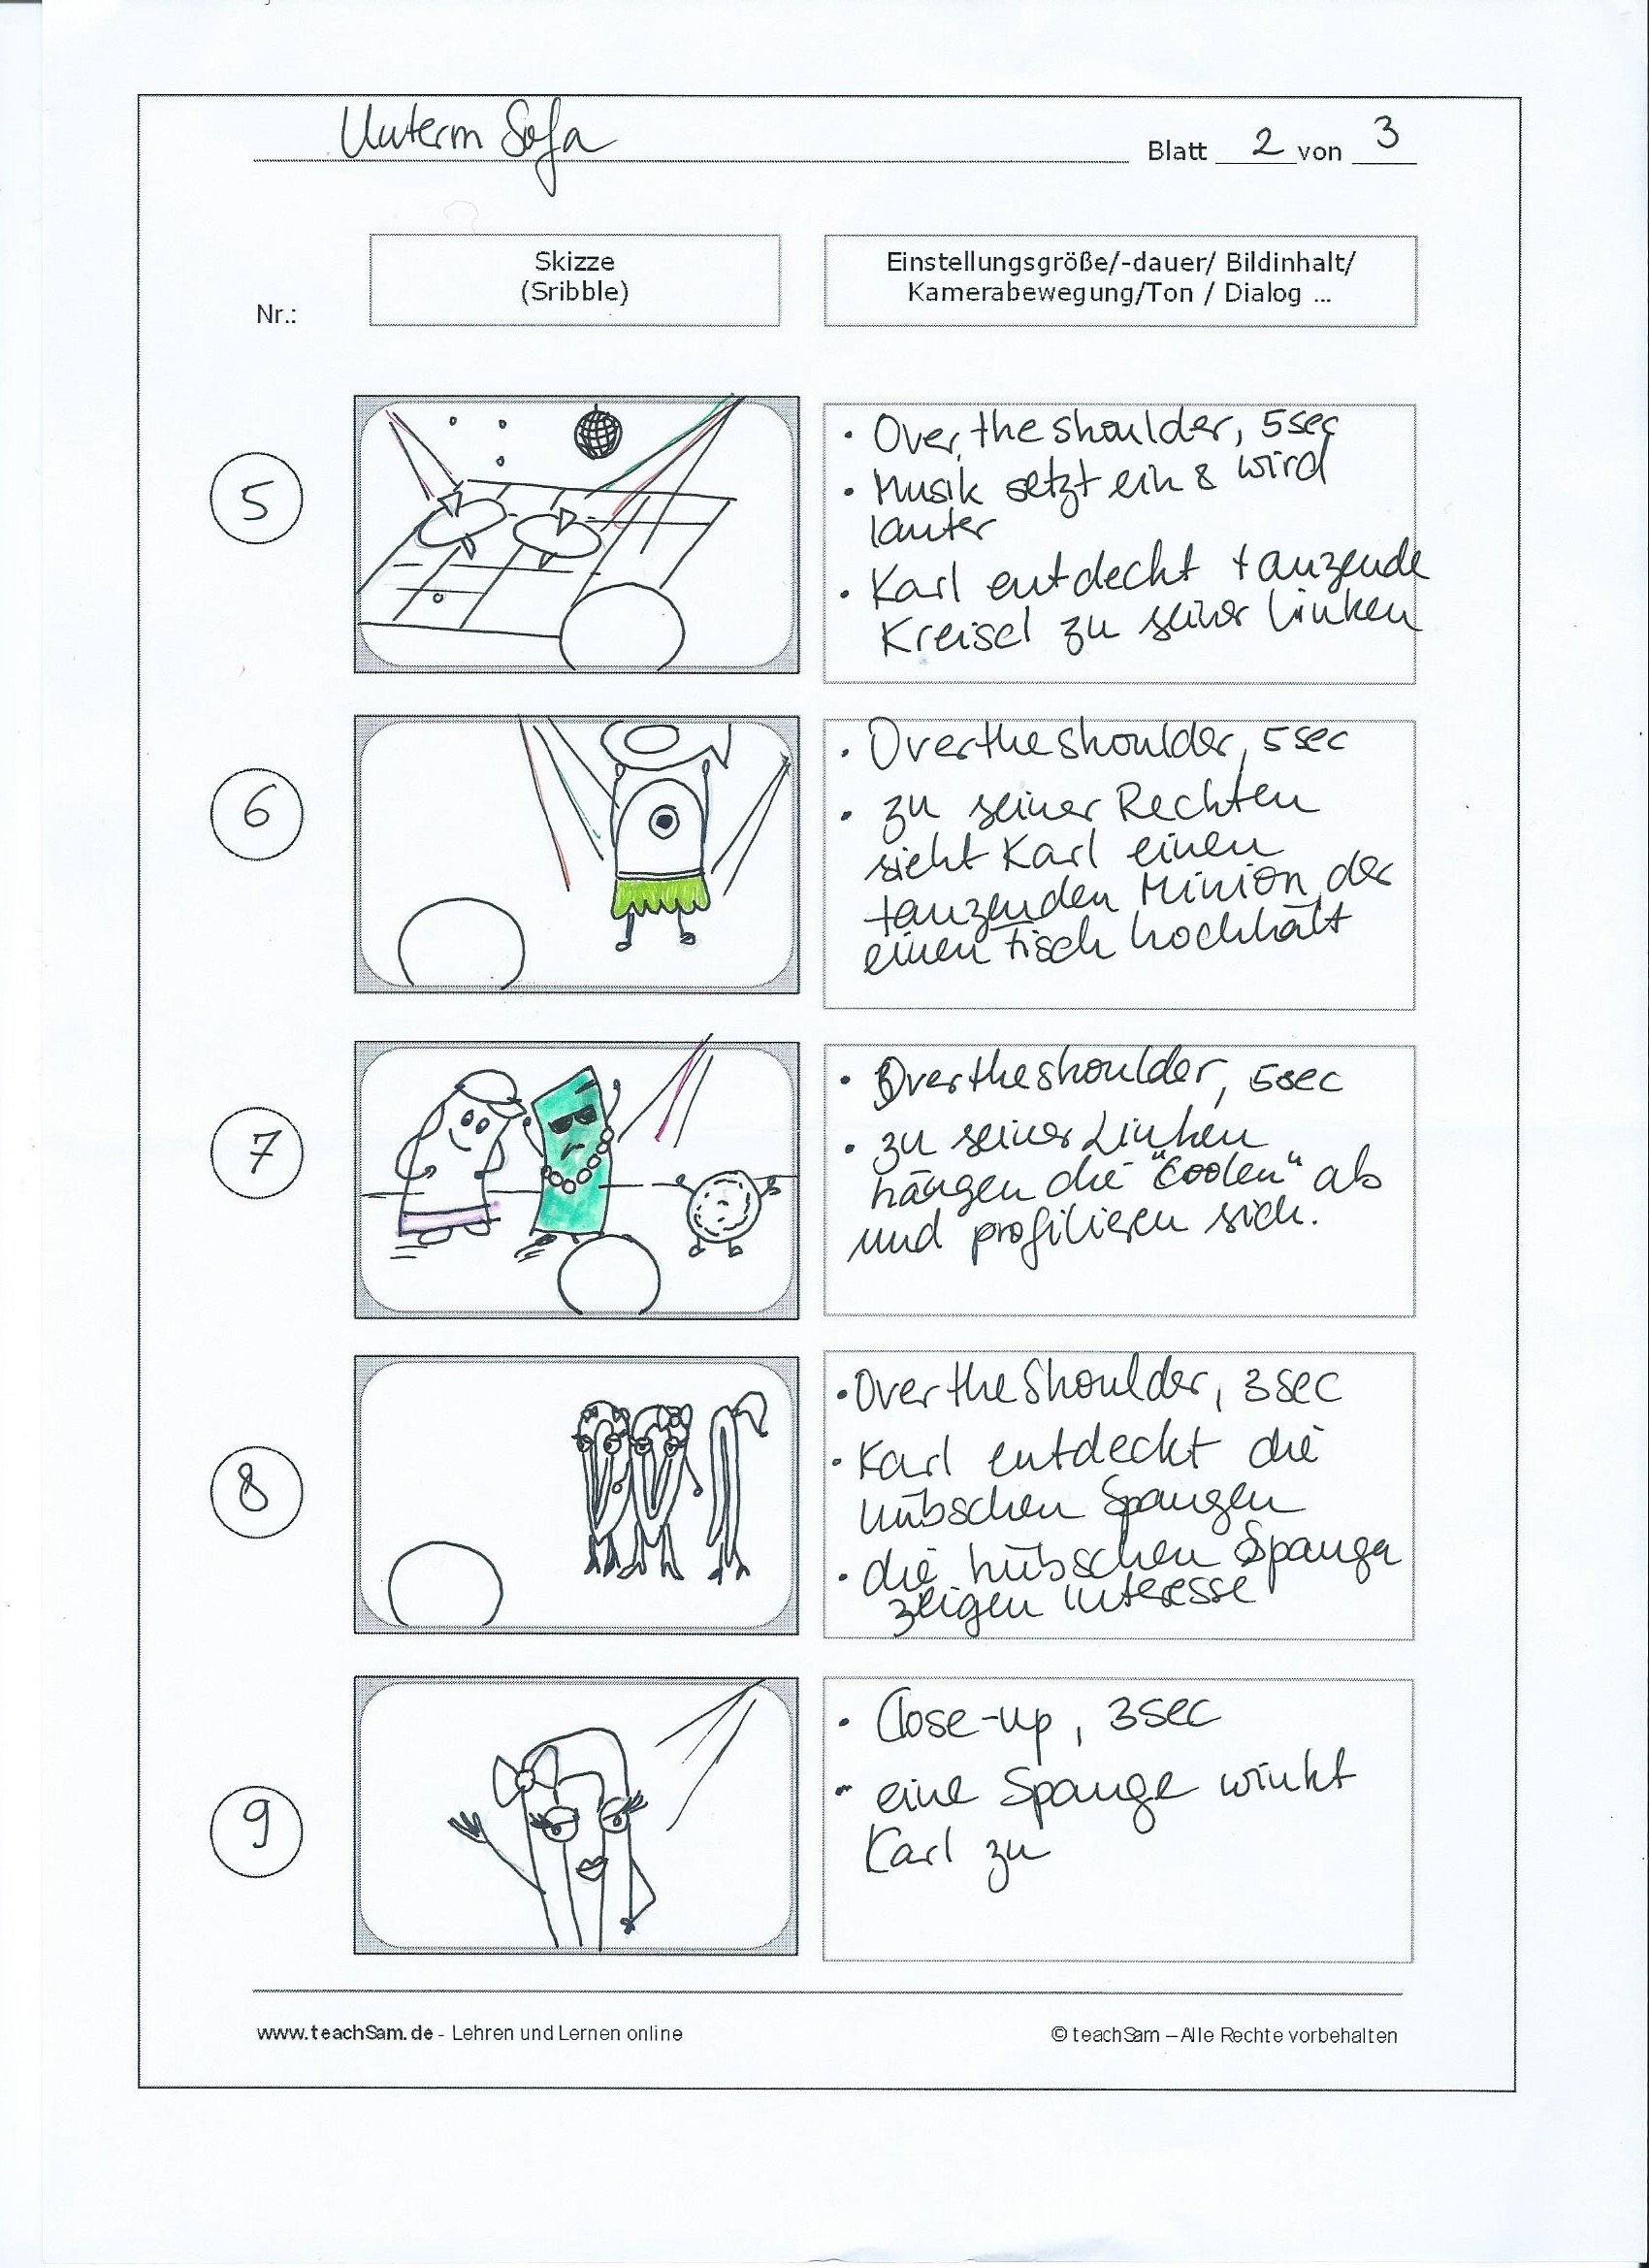 Unterm Sofa
Blatt 2 von 3
Skizze
(Sribble)
Einstellungsgröße/-dauer/ Bildinhalt/
Kamerabewegung/Ton / Dialog ...
Nr.:
5
• Over the shoulder, 5sec
• Musik setzt ein & wird
lauter
• Karl entdeckt tanzende
Kreisel zu seiner Linken
6
• Over the shoulder, 5sec
• zu seiner Rechten
sieht Karl einen
tanzenden Minion der
einen Tisch hochhält
7
• Over the shoulder, 5sec
• zu seiner Linken
hängen die "Coolen" ab
und profilieren sich.
8
• Over the Shoulder, 3sec
• Karl entdeckt die
hübschen Spangen
• die hübschen Spangen
zeigen Interesse
9
• Close-up, 3sec
• eine Spange winkt
Karl zu
www.teachSam.de - Lehren und Lernen online
© teachSam – Alle Rechte vorbehalten